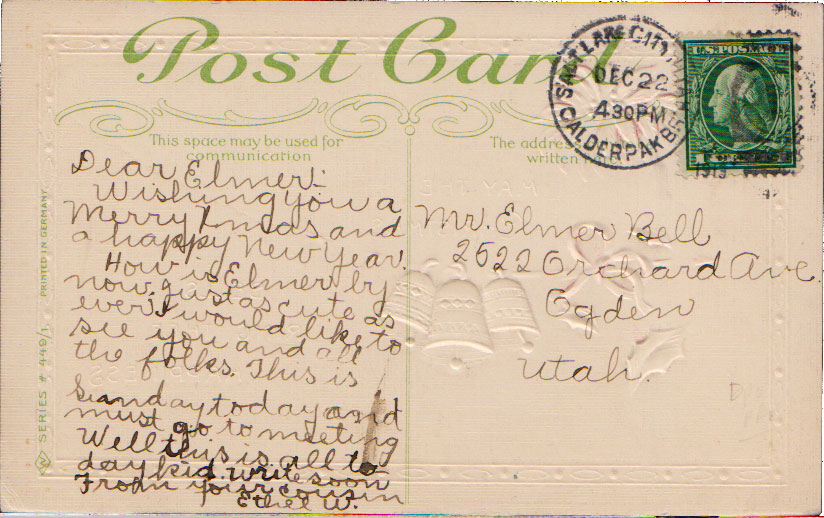 Post Card
This space may be used for
communication
The address
written
SALT LAKE CITY
DEC 22
4 30 PM
1913
U.S. POSTAGE
PRINTED IN GERMANY
SERIES # 449/1.
Dear Elmer:
Wishing you a
Merry Xmas and
a happy New Year.
How is Elmer by
now, just as cute as
ever. I would like to
see you and all
the folks. This is
Sunday today and
must go to meeting
Well this is all to
day kid. write soon
From your cousin
Ethel W.
Mr. Elmer Bell
2522 Orchard Ave.
Ogden
Utah.